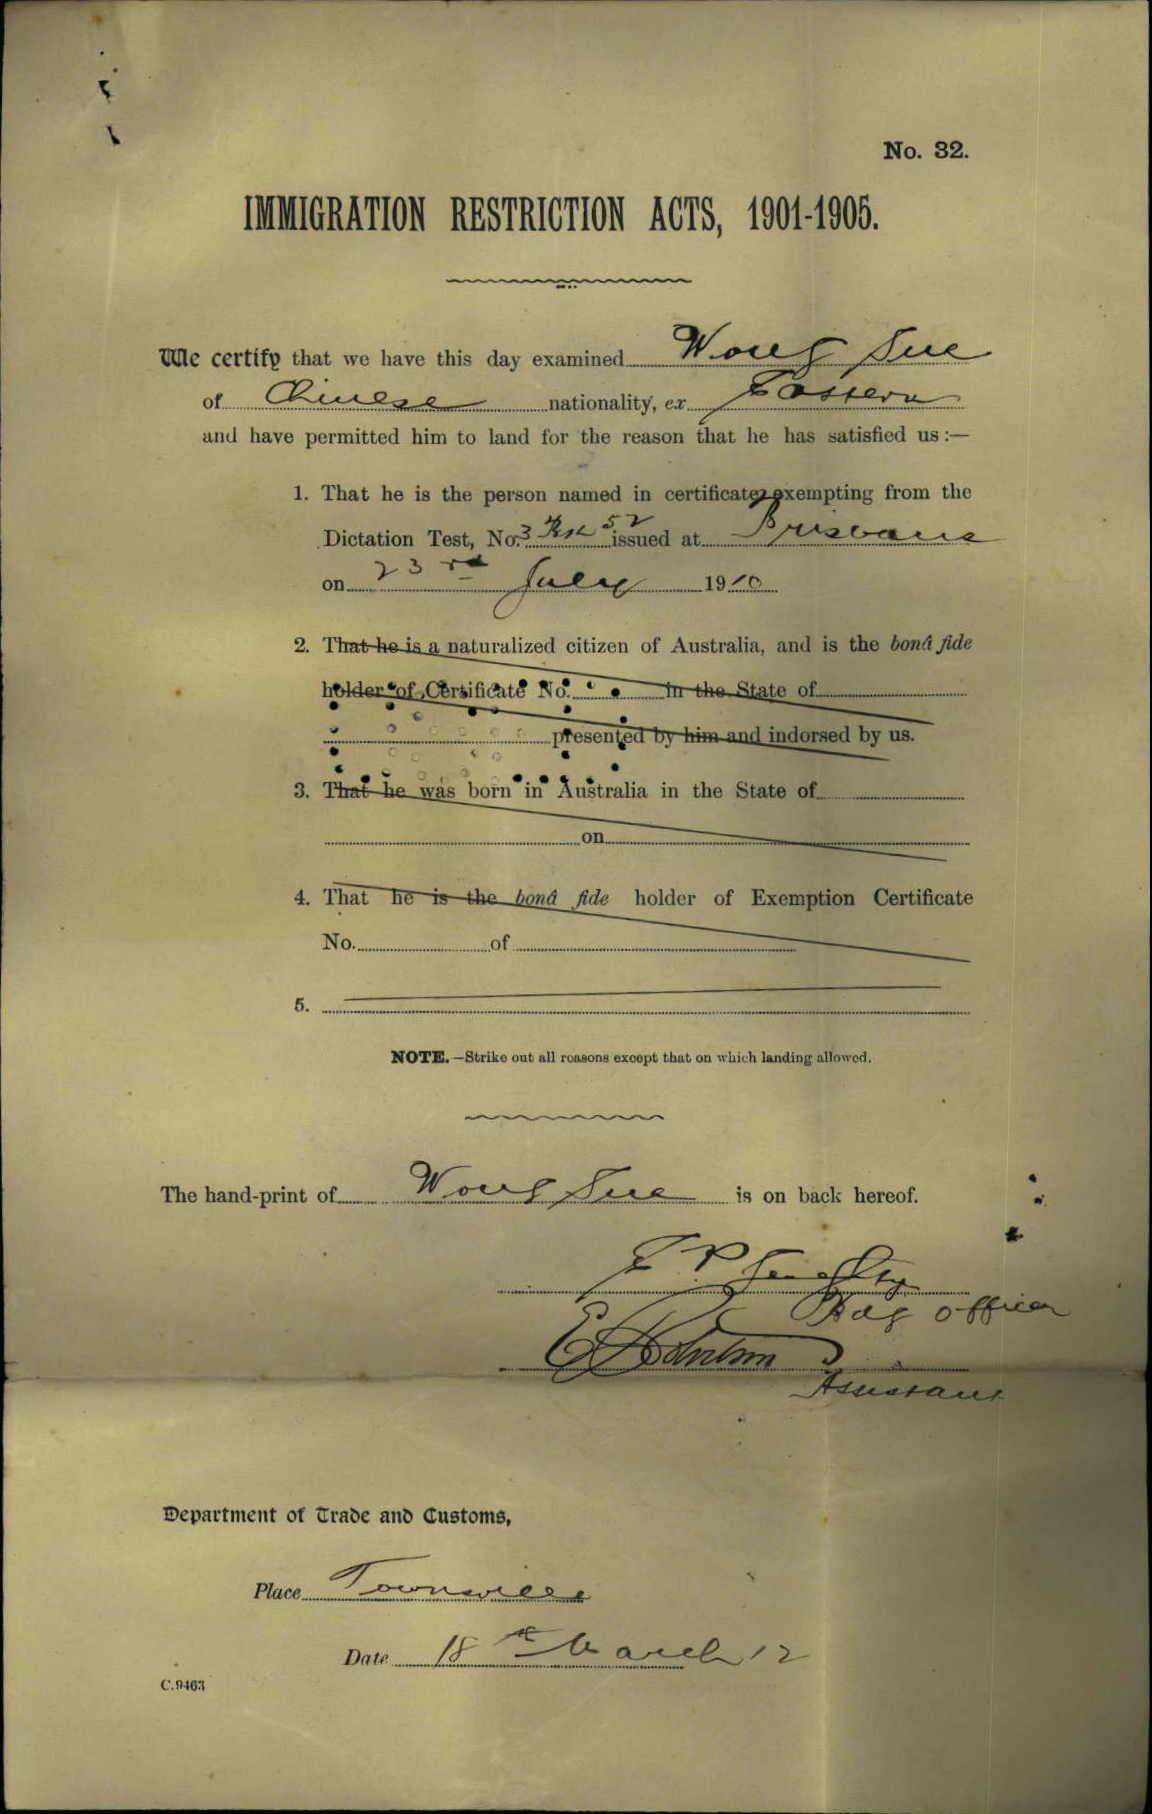 No. 32.
IMMIGRATION RESTRICTION ACTS, 1901-1905.
We certify that we have this day examined Wong Sue
of Chinese nationality, ex Eastern
and have permitted him to land for the reason that he has satisfied us :—
1. That he is the person named in certificate exempting from the
Dictation Test, No. 3 Bk 52 issued at Brisbane
on 23rd July 1910
2. That he is a naturalized citizen of Australia, and is the bonâ fide
holder of Certificate No. in the State of
presented by him and indorsed by us.
3. That he was born in Australia in the State of
on
4. That he is the bonâ fide holder of Exemption Certificate
No. of
5.
NOTE.—Strike out all reasons except that on which landing allowed.
The hand-print of Wong Sue is on back hereof.
E P
Bdg Officer
Assistant
Department of Trade and Customs,
Place Townsville
Date 18th March 12
C.9463